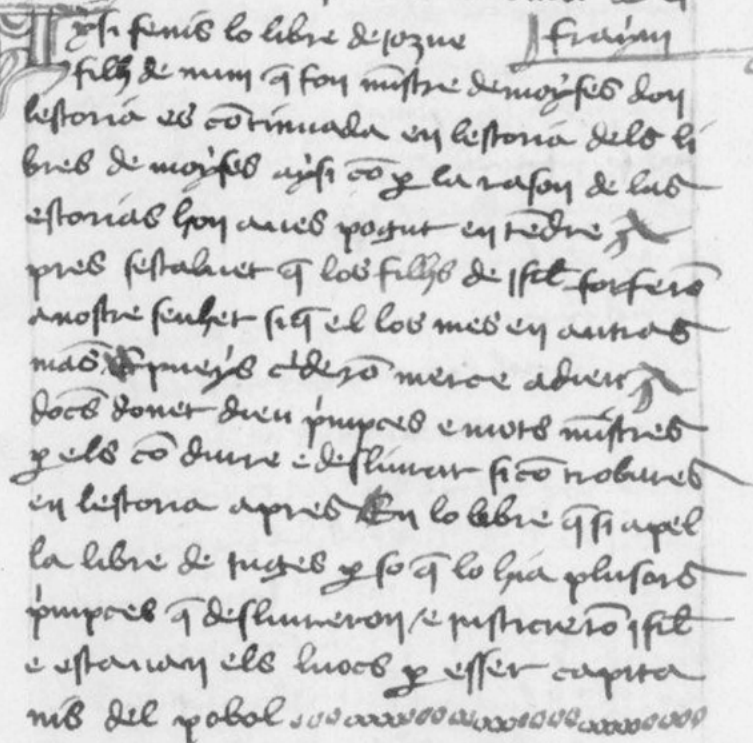 Aysi fenis lo libre de Jozue frayan
filh de nun q̃ fon mĩstre de moyses don
lestoria es cõtinuada en lestoria dels li
bres de moyses aysi cõ p la rason de las
estorias hon aues pogut en tẽdre A
pres sestaluet q̃ los filhs de isrl̃ forferõ
a nostre senher si q̃ el los mes en autras
mãs E pueys q̃rderõ merce a dieu A
docs donet dieu p̃inpces e mots mĩstres
p els cõ duire e desliurar si cõ trobares
en lestoria apres En lo libre q̃ si apel
la libre de iuges p so q̃ lo hia plusors
p̃inpces q̃ desliureron e iusticierõ isrl̃
e estauan els luocs p esser capita
nis del pobol